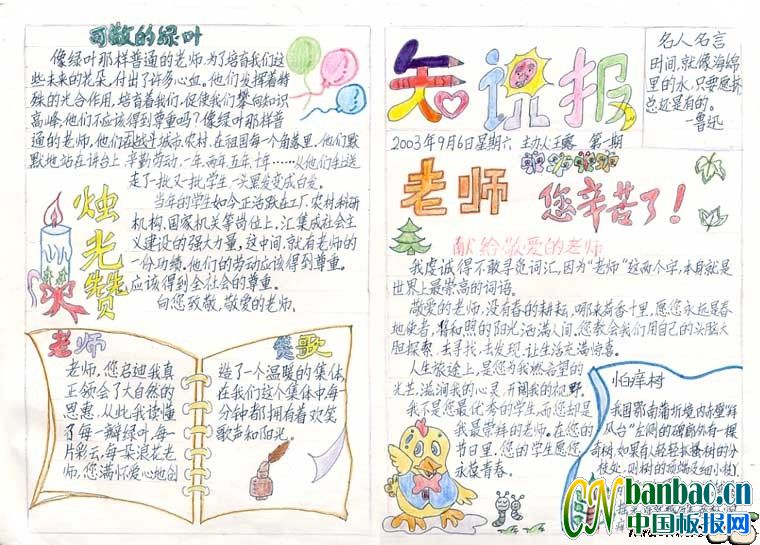 可敬的绿叶
像绿叶那样普通的老师,为了培育我们这
些未来的花朵,付出了许多心血。他们发挥着特
殊的光合作用,培育着我们,促使我们攀向知识
高峰,他们不应该得到尊重吗?像绿叶那样普
通的老师,他们在城市,农村,在祖国每一个角落里,他们默
默地站在讲台上,辛勤劳动,一年,两年,五年,十年……从他们手上送
走了一批又一批学生,一头黑发变成白发。
当年的学生如今正活跃在工厂、农村、科研
机构、国家机关等岗位上,汇集成社会主
义建设的强大力量,这中间,就有老师的
一份功绩。他们的劳动应该得到尊重。
应该得到全社会的尊重。
向您致敬,敬爱的老师。
烛光赞
老师
老师,您启迪我真
正领会了大自然的
恩惠,从此我读懂
了每一瓣绿叶,每一
片彩云,每朵浪花老
师,您满怀爱心地创
赞歌
造了一个温暖的集体,
在我们这个集体中每一
分钟都拥有着欢笑
歌声和阳光。
知识报
名人名言
时间,就像海绵
里的水,只要愿挤,
总还是有的。
—鲁迅
2003年9月6日星期六 主办人:王露 第一期
老师
您辛苦了!
献给敬爱的老师
我虔诚得不敢寻觅词汇,因为“老师”这两个字,本身就是
世界上最崇高的词语。
敬爱的老师,没有春的耕耘,哪来荷香十里,愿您永远是春
地使者,将和照的阳光洒满人间。您教会我们用自己的头脑大
胆探索,去寻找,去发现,让生活充满惊喜。
人生旅途上,是您为我燃起希望的
光芒,滋润我的心灵,开阔我的视野。
我不是您最优秀的学生,而您却是
我最崇拜的老师。在您的
节日里,您的学生愿您
永葆青春。
怕痒树
我国鄂南蒲圻境内赤壁“拜
风台”左侧的碑廊外有一棵
奇树,如果有人轻轻扒搔树的分
枝处,则树的顶端及细小枝
CN banbao.cn
中国板报网